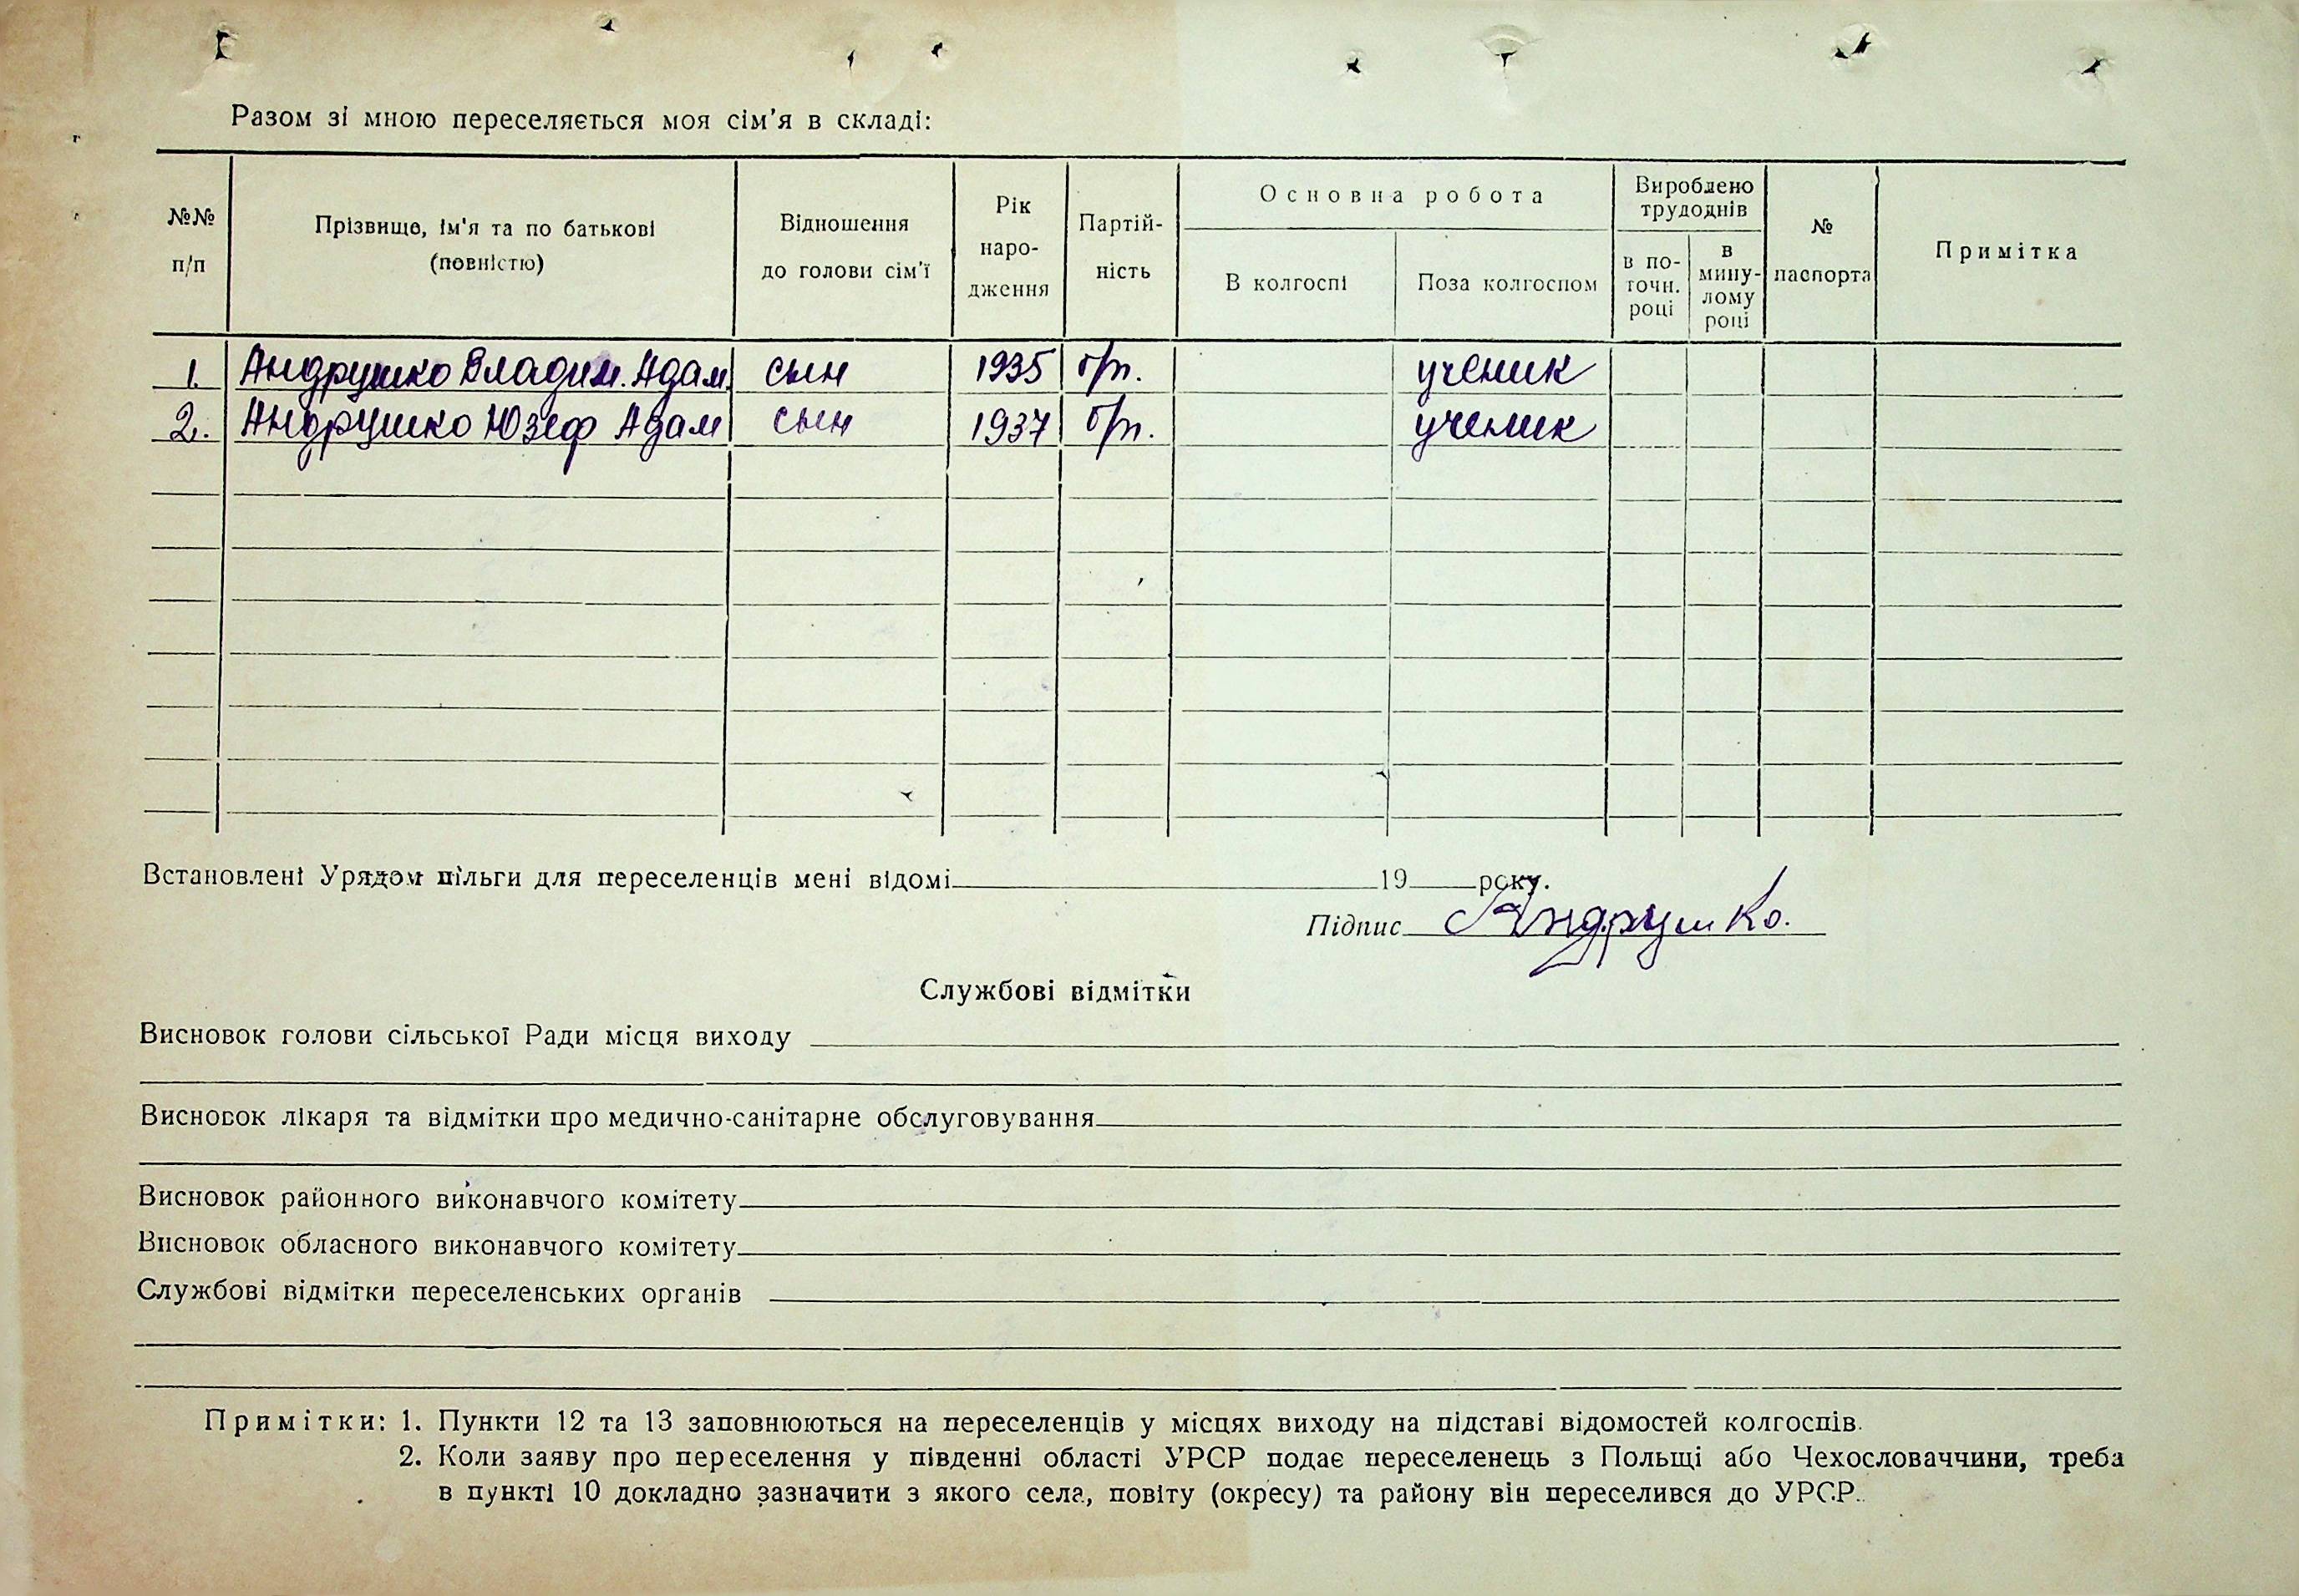 Разом зі мною переселяється моя сім'я в складі:
№№ п/п
Прізвище, ім'я та по батькові (повністю)
Відношення до голови сім'ї
Рік народження
Партійність
Основна робота
В колгоспі
Поза колгоспом
Вироблено трудоднів
в поточн. році
в минулому році
№ паспорта
Примітка
1. Андрушко Владим. Адам. сын 1935 б/п. ученик
2. Андрушко Юзеф Адам сын 1937 б/п. ученик
Встановлені Урядом пільги для переселенців мені відомі 19 року.
Підпис Андрушко.
Службові відмітки
Висновок голови сільської Ради місця виходу
Висновок лікаря та відмітки про медично-санітарне обслуговування
Висновок районного виконавчого комітету
Висновок обласного виконавчого комітету
Службові відмітки переселенських органів
Примітки: 1. Пункти 12 та 13 заповнюються на переселенців у місцях виходу на підставі відомостей колгоспів.
2. Коли заяву про переселення у південні області УРСР подає переселенець з Польщі або Чехословаччини, треба
в пункті 10 докладно зазначити з якого села, повіту (окресу) та району він переселився до УРСР.